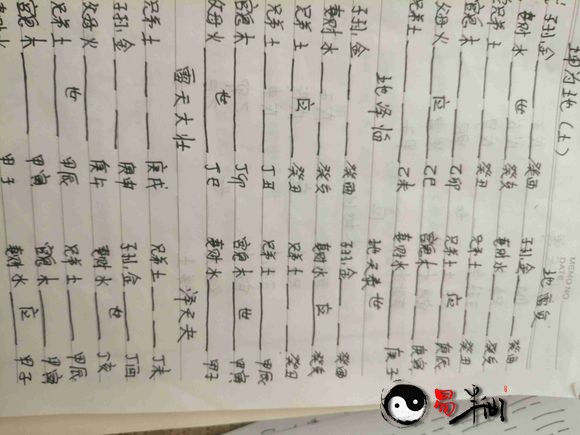 MEMO NO.
DATE
坤为地（土） 地雷复
子孙金 癸酉 子孙金 癸酉
妻财水 世 癸亥 妻财水 癸亥
兄弟土 癸丑 兄弟土 应 癸丑
官鬼木 乙卯 兄弟土 庚辰
父母火 应 乙巳 官鬼木 庚寅
兄弟土 乙未 妻财水 世 庚子
地泽临 地天泰
子孙金 癸酉 子孙金 癸酉
妻财水 癸亥 妻财水 应 癸亥
兄弟土 应 癸丑 兄弟土 癸丑
兄弟土 丁丑 兄弟土 甲辰
官鬼木 丁卯 官鬼木 世 甲寅
父母火 世 丁巳 妻财水 甲子
雷天大壮 泽天夬
兄弟土 庚戌 兄弟土 丁未
子孙金 庚申 子孙金 丁酉
父母火 世 庚午 妻财水 世 丁亥
兄弟土 甲辰 兄弟土 甲辰
官鬼木 甲寅 官鬼木 甲寅
妻财水 甲子 妻财水 应 甲子